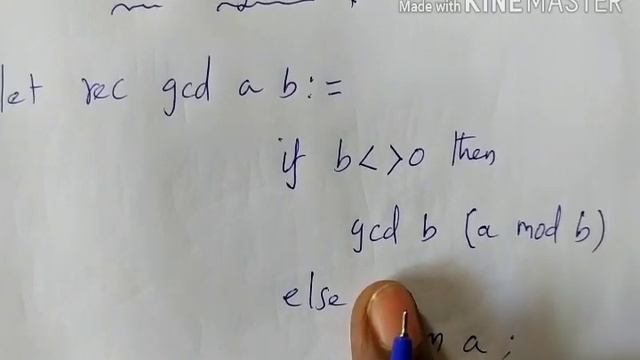 Made with KINEMASTER
let rec gcd a b :=
if b <> 0 then
gcd b (a mod b)
else
a ;